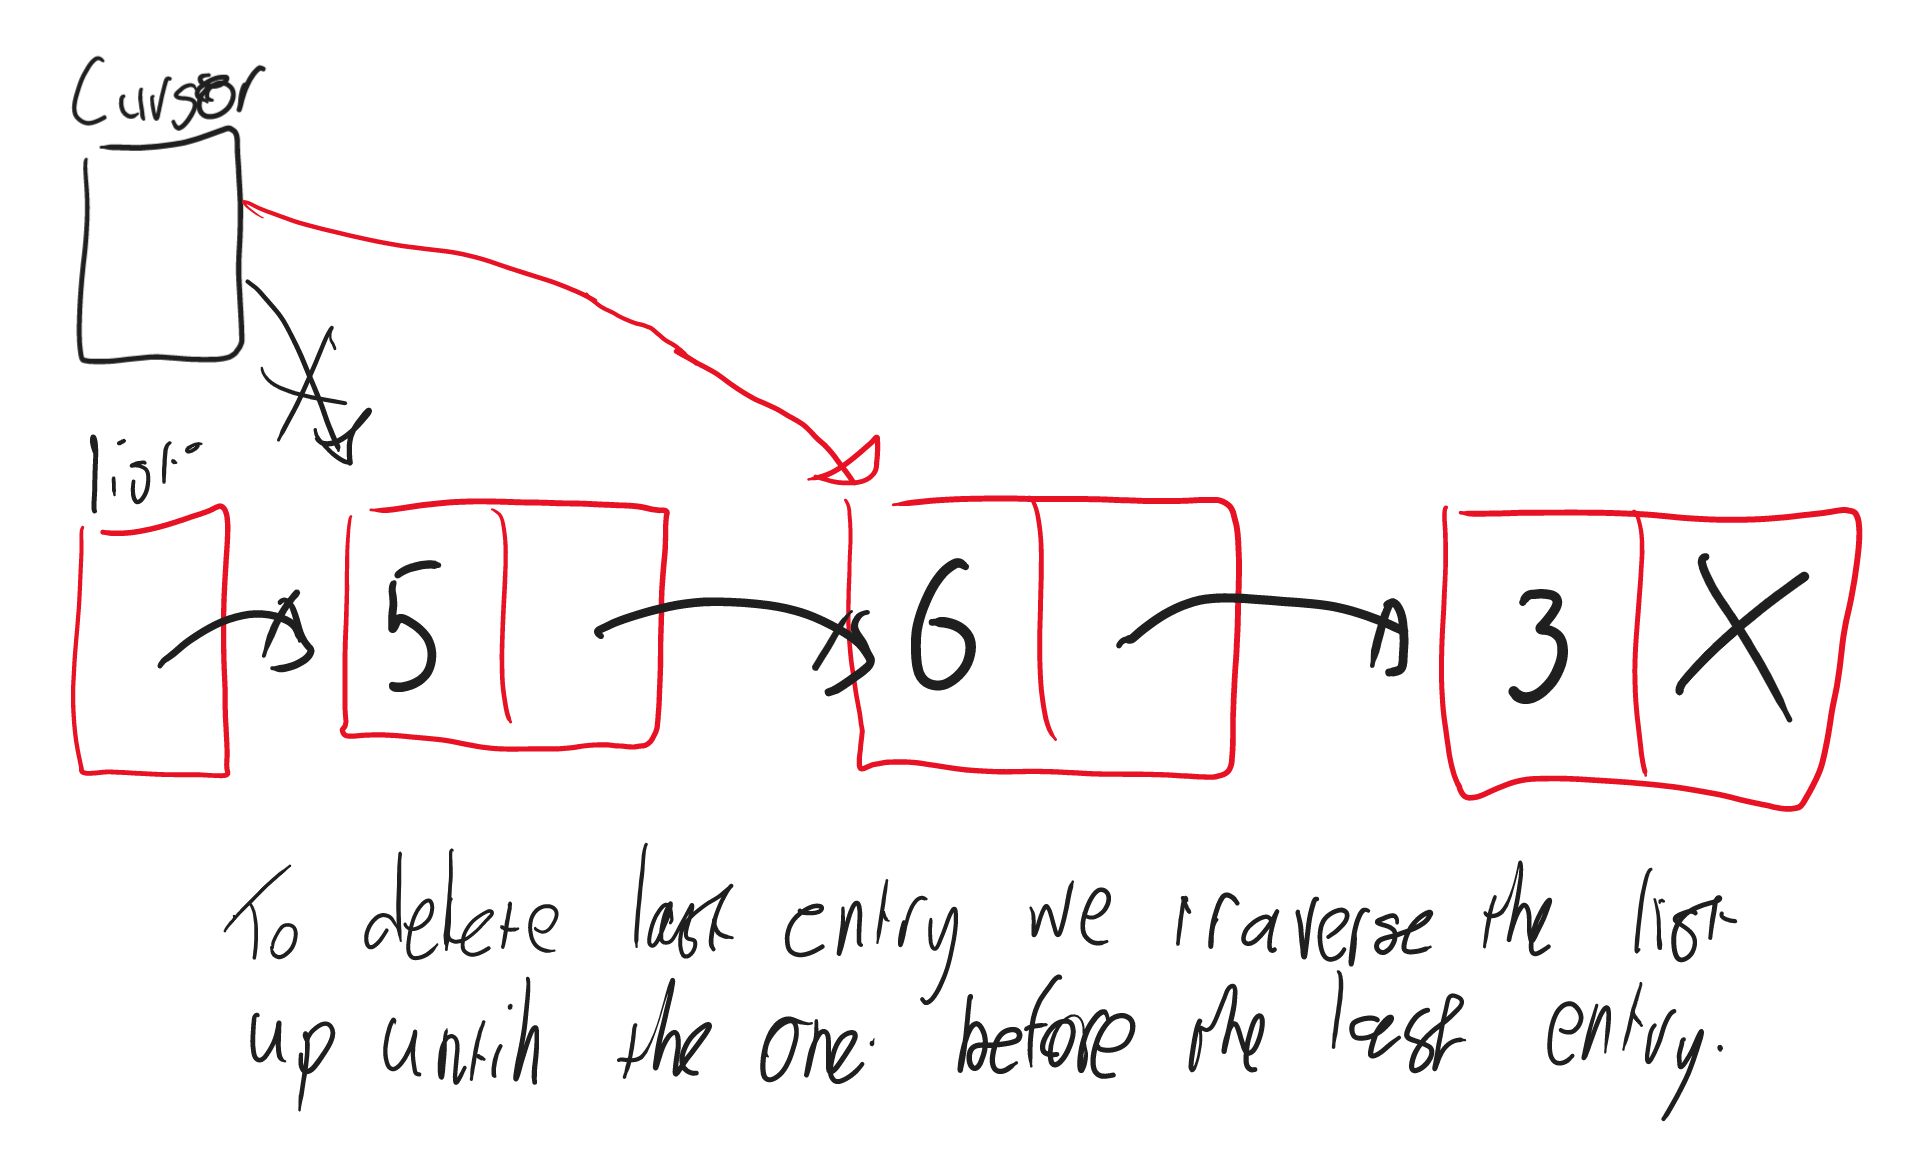 Cursor
list
5 6 3 X
To delete last entry we traverse the list
up until the one before the last entry.